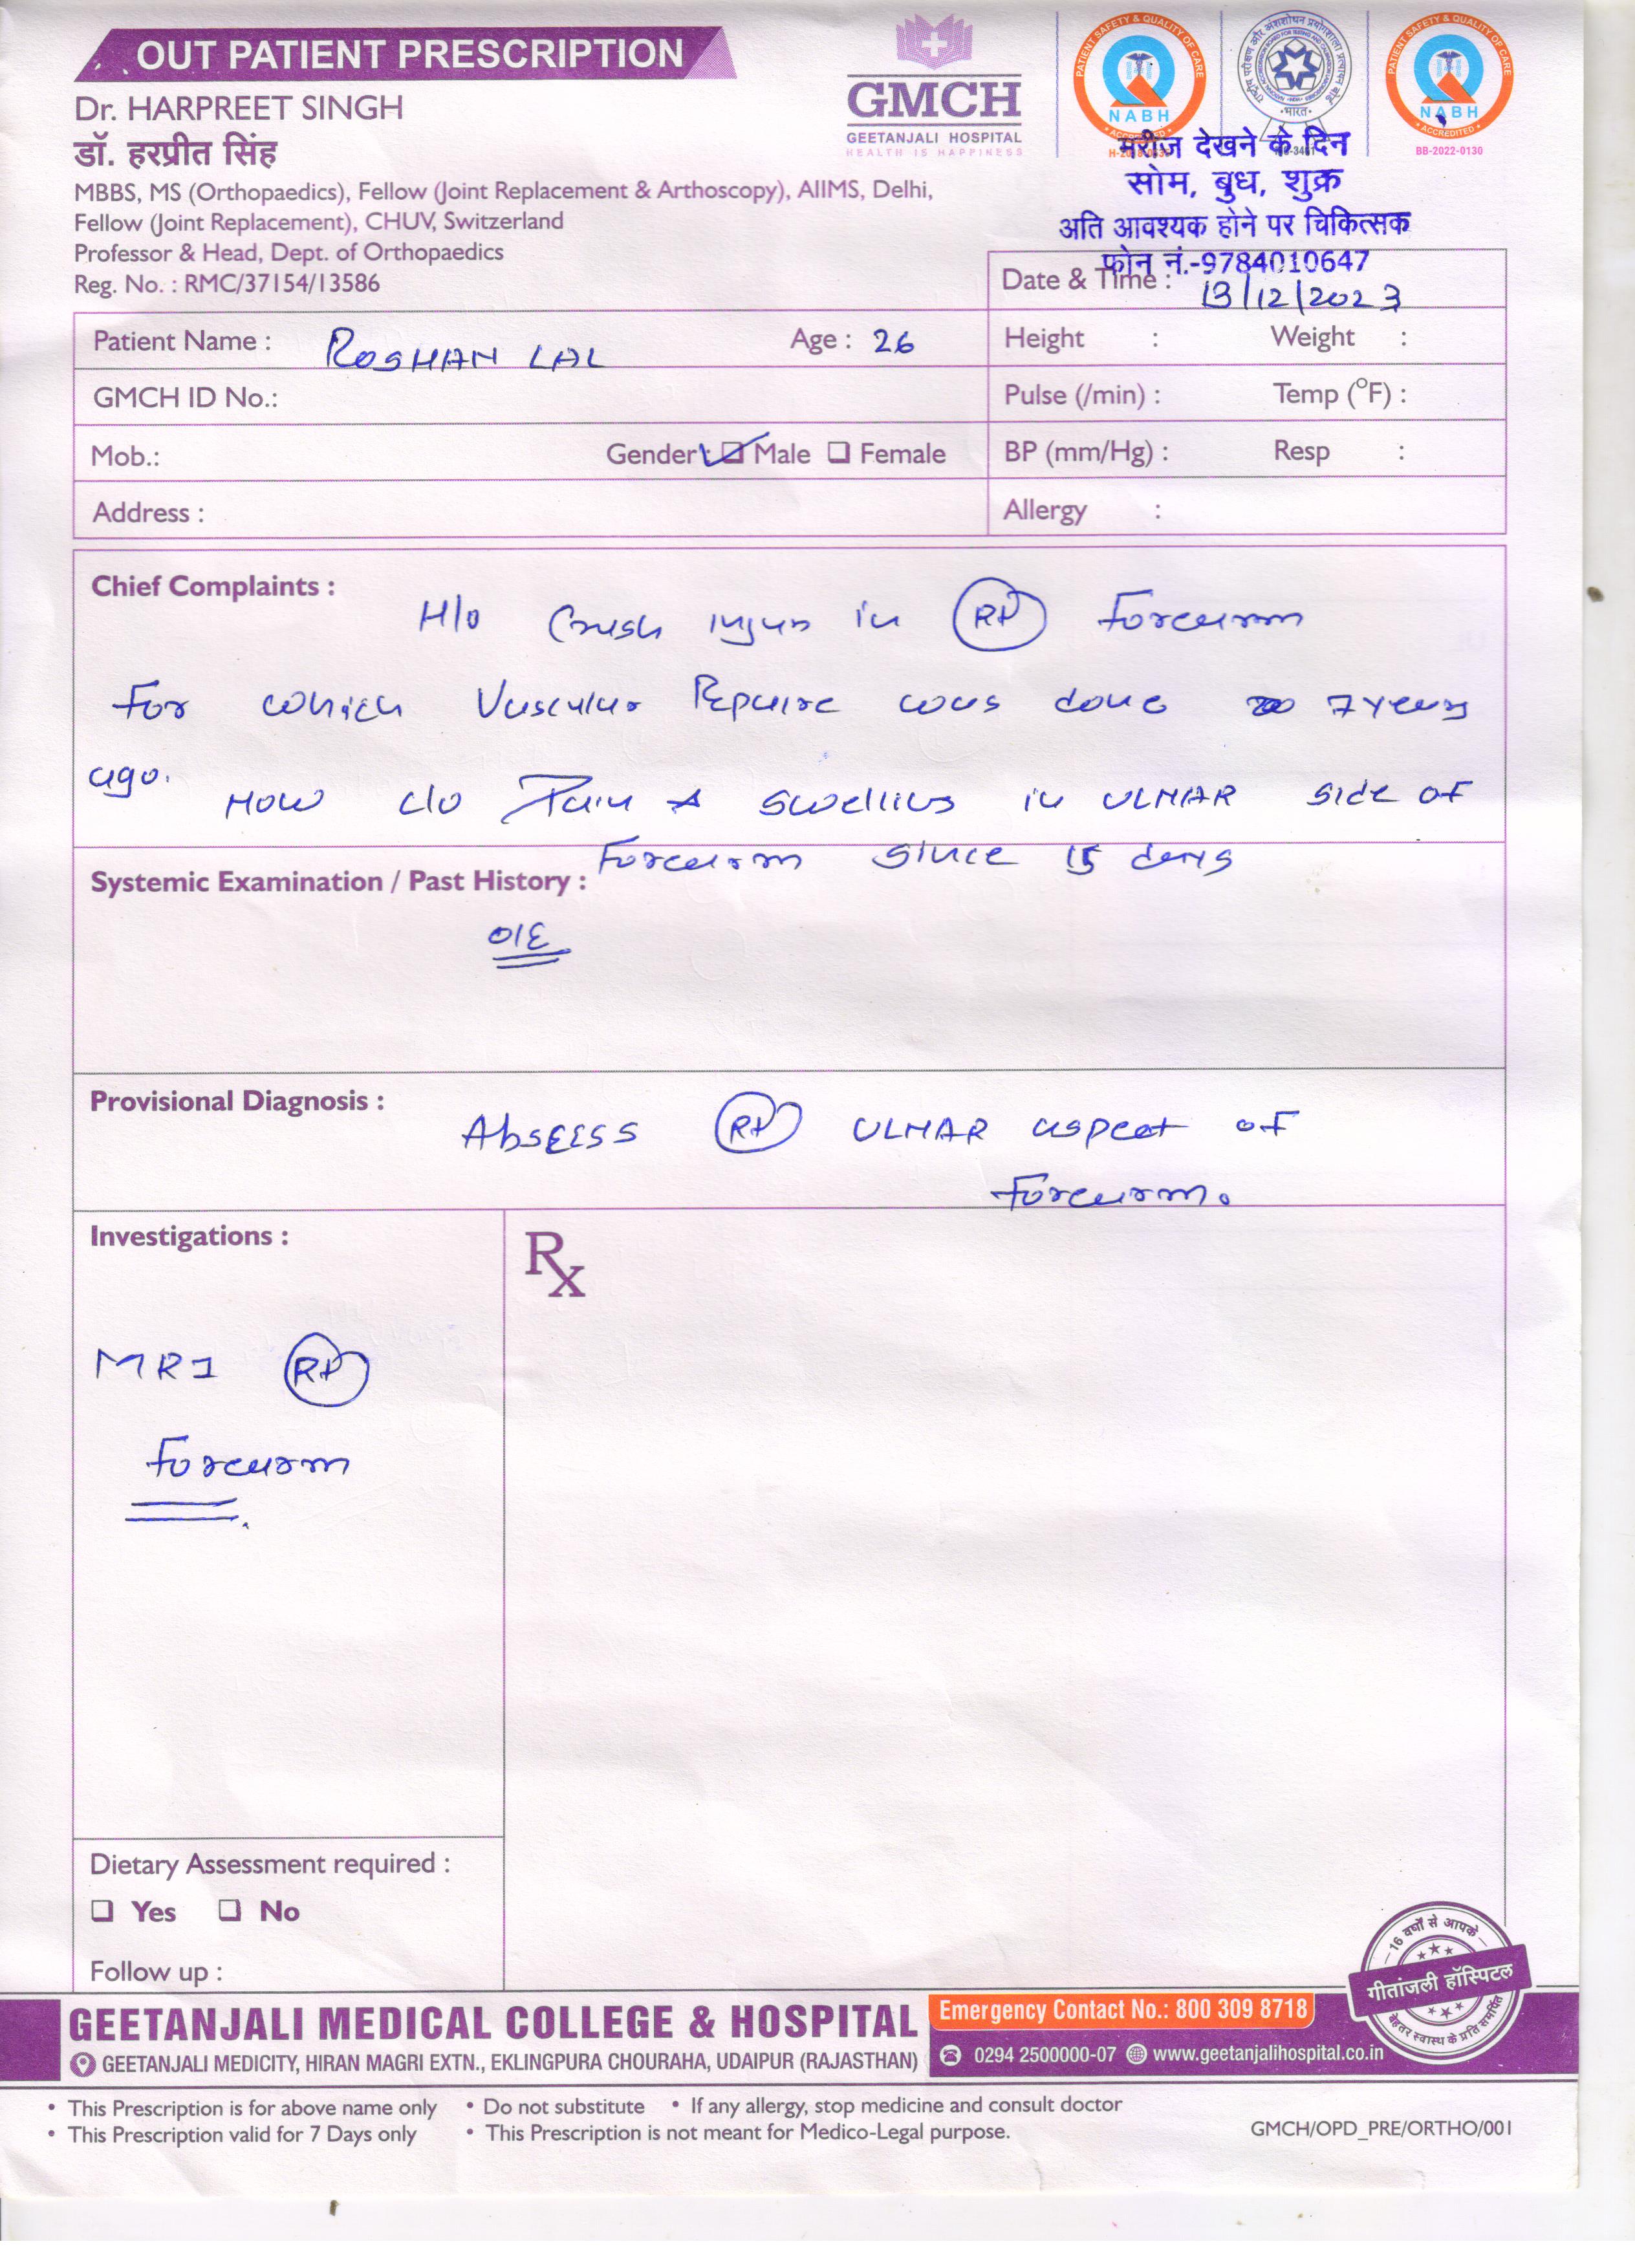 OUT PATIENT PRESCRIPTION
Dr. HARPREET SINGH
डॉ. हरप्रीत सिंह
MBBS, MS (Orthopaedics), Fellow (Joint Replacement & Arthoscopy), AIIMS, Delhi,
Fellow (Joint Replacement), CHUV, Switzerland
Professor & Head, Dept. of Orthopaedics
Reg. No. : RMC/37154/13586
GMCH
GEETANJALI HOSPITAL
HEALTH IS HAPPINESS
PATIENT SAFETY & QUALITY OF CARE
NABH
ACCREDITED
भारत
PATIENT SAFETY & QUALITY OF CARE
NABH
ACCREDITED
BB-2022-0130
मरीज देखने के दिन
सोम, बुध, शुक्र
अति आवश्यक होने पर चिकित्सक
फोन नं.-9784010647
Date & Time : 13/12/2023
Patient Name : ROSHAN LAL Age : 26 Height : Weight :
GMCH ID No.: Pulse (/min) : Temp (°F) :
Mob.: Gender : Male Female BP (mm/Hg) : Resp :
Address : Allergy :
Chief Complaints :
H/o Crush injury in RT Forearm
For which Vascular Repaire was done 7 years
ago.
Now c/o Pain & swelling in ULNAR side of
Forearm since 15 days
Systemic Examination / Past History :
O/E
Provisional Diagnosis :
Abscess RT ULNAR aspect of
Forearm.
Investigations :
Rx
MRI RT
Forearm
Dietary Assessment required :
Yes No
Follow up :
16 वर्षों से आपके
गीतांजली हॉस्पिटल
बेहतर स्वास्थ के प्रति समर्पित
GEETANJALI MEDICAL COLLEGE & HOSPITAL
Emergency Contact No.: 800 309 8718
GEETANJALI MEDICITY, HIRAN MAGRI EXTN., EKLINGPURA CHOURAHA, UDAIPUR (RAJASTHAN)
0294 2500000-07 www.geetanjalihospital.co.in
• This Prescription is for above name only • Do not substitute • If any allergy, stop medicine and consult doctor
• This Prescription valid for 7 Days only • This Prescription is not meant for Medico-Legal purpose.
GMCH/OPD_PRE/ORTHO/001